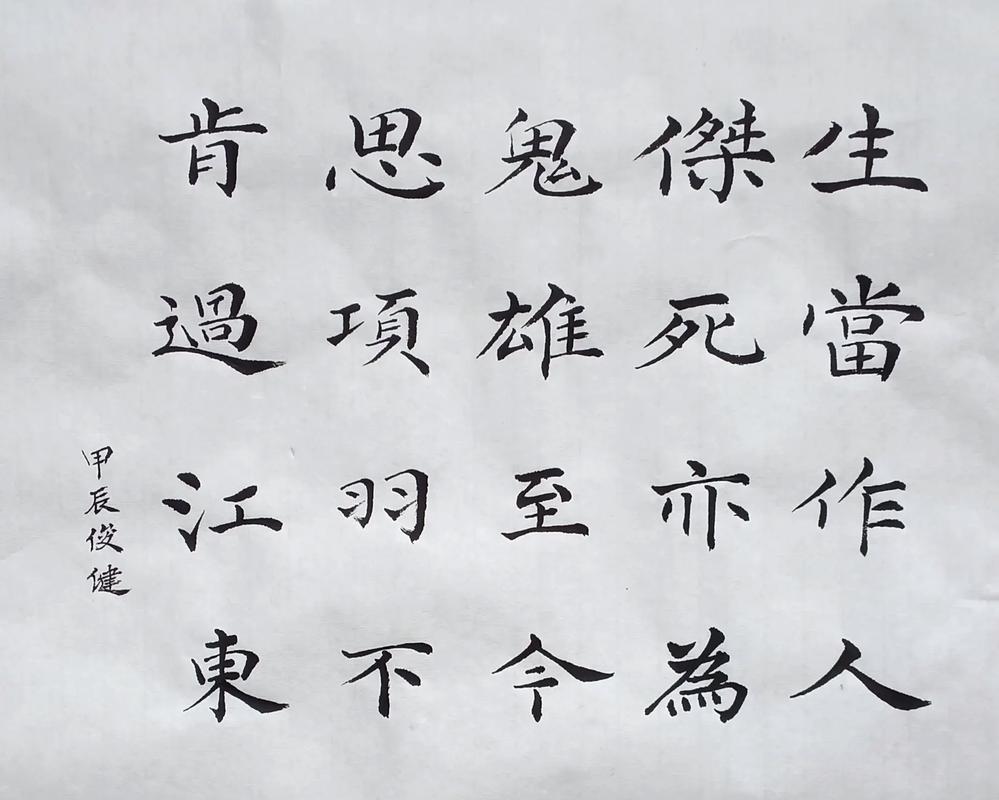 生當作人
傑死亦為
鬼雄至今
思項羽不
肯過江東
甲辰俊健